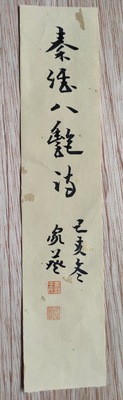 秦淮八艷詩
己亥冬
家